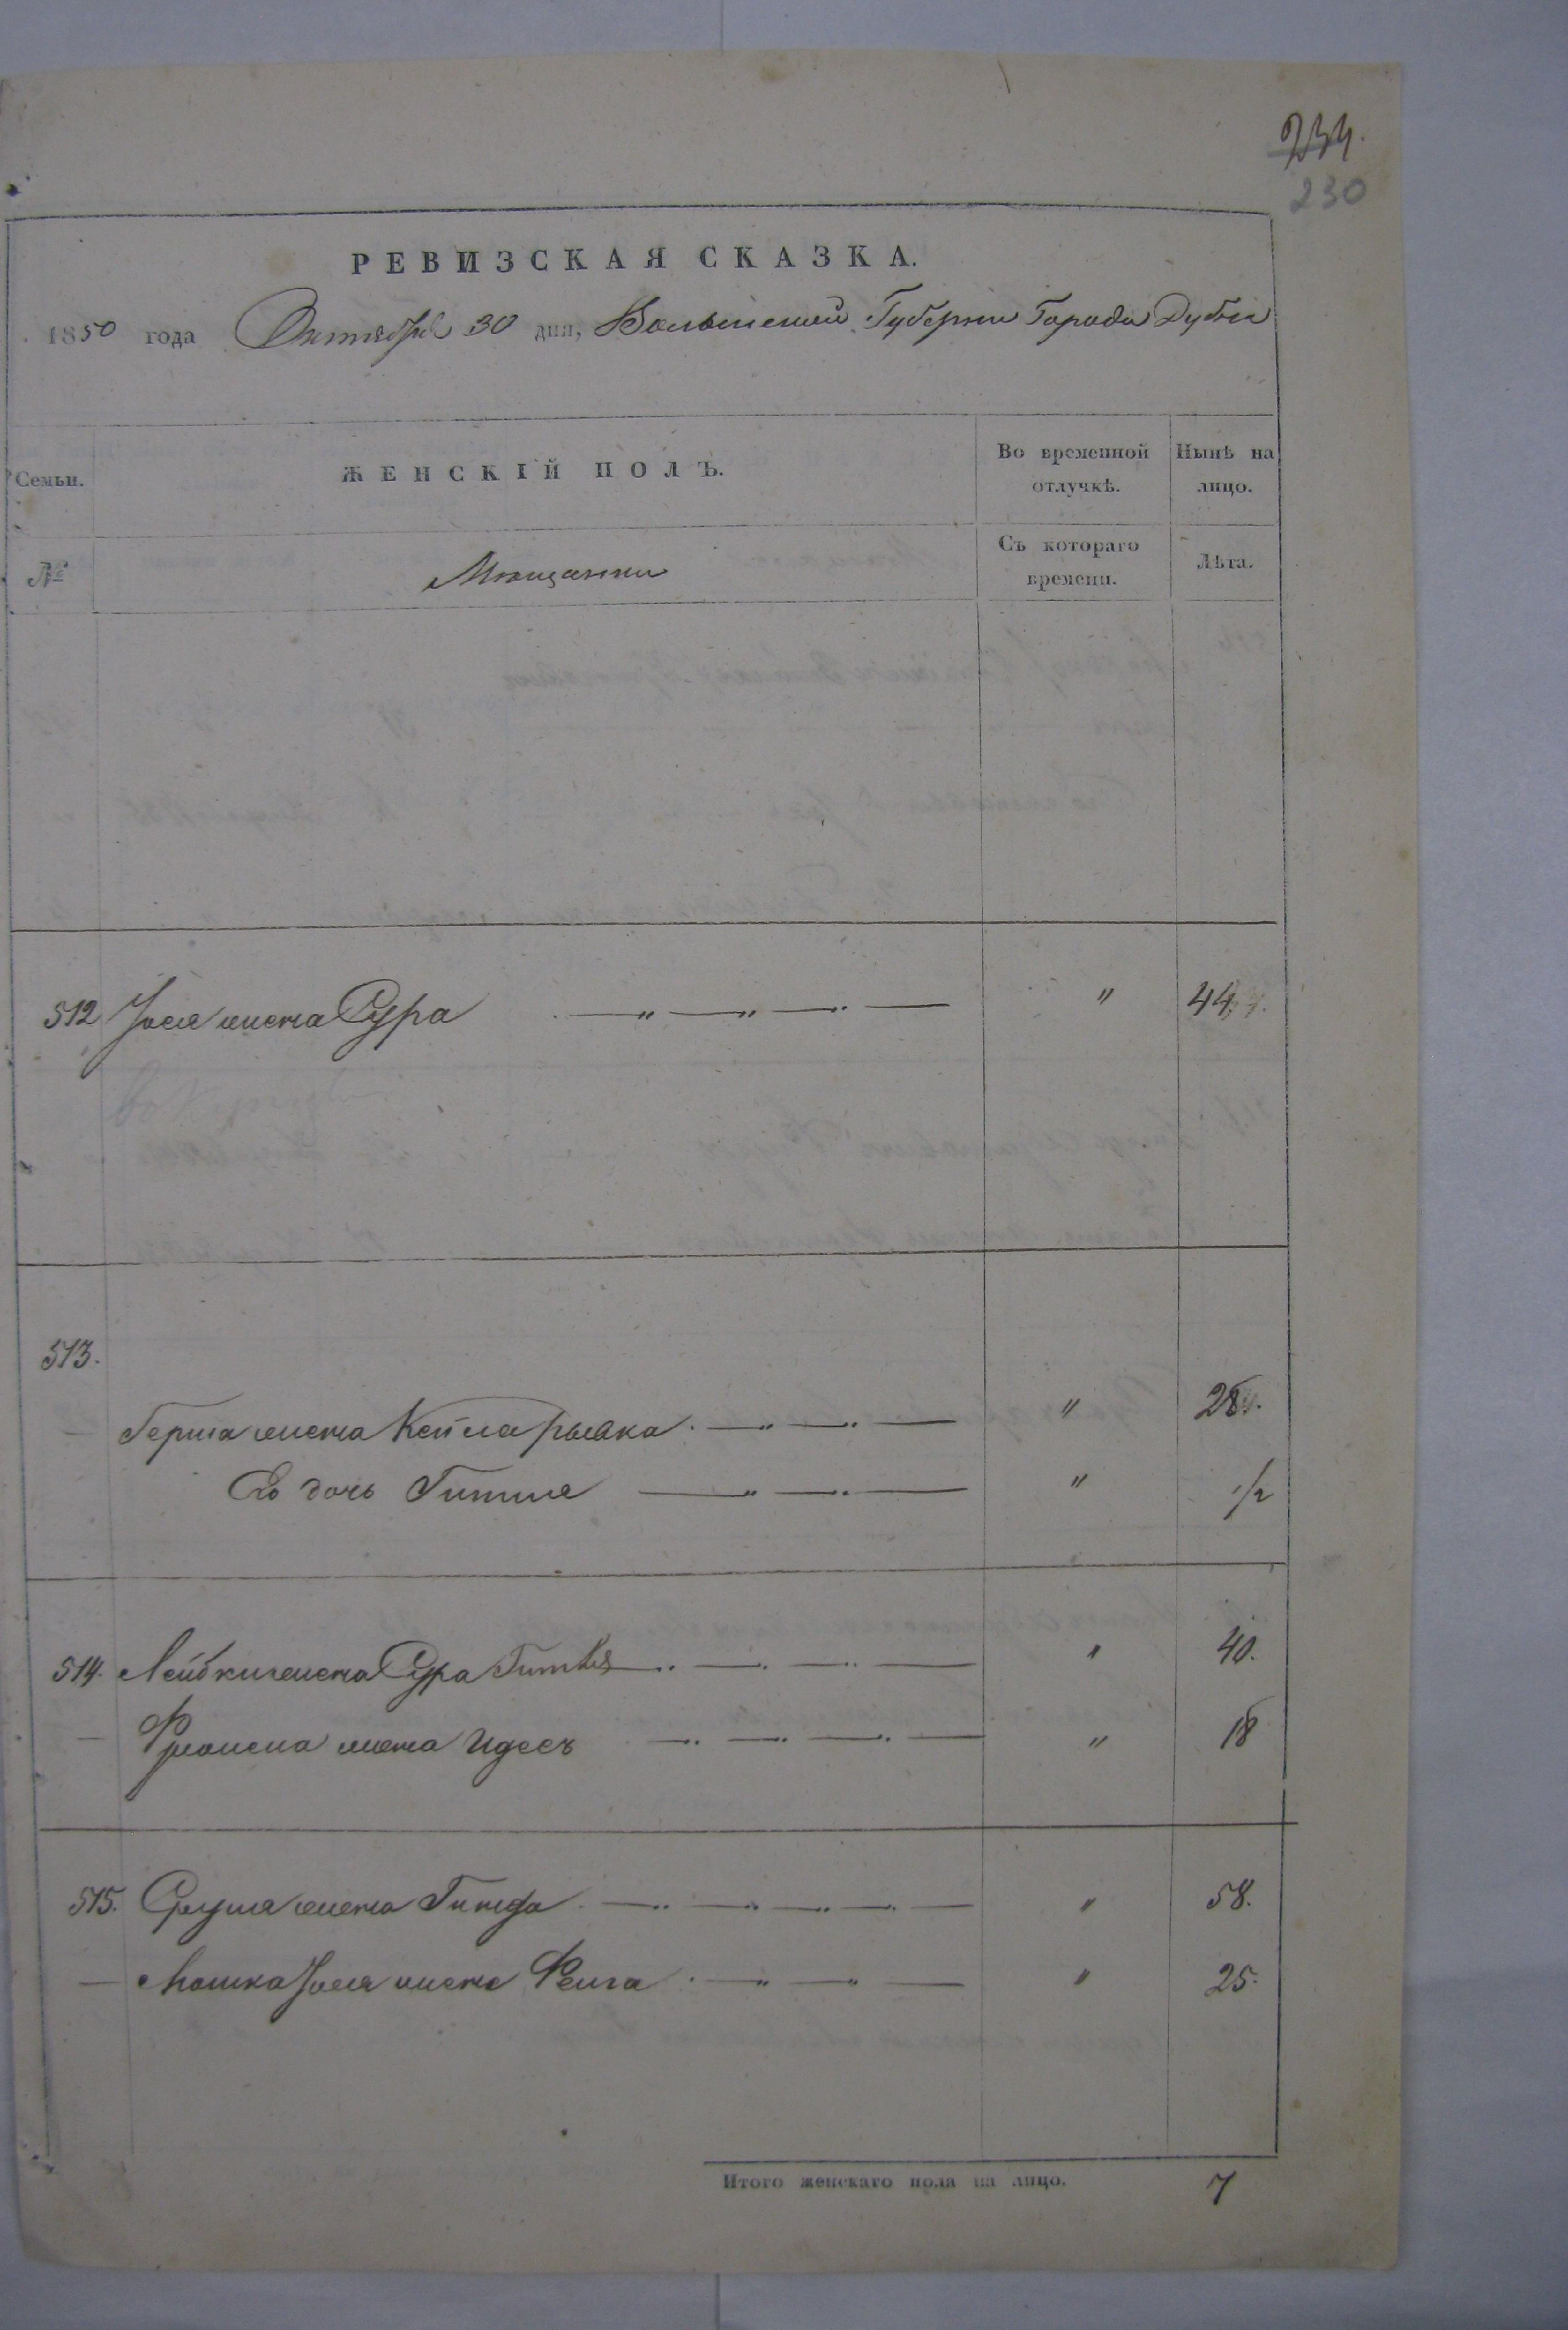 234.
230
РЕВИЗСКАЯ СКАЗКА.
1850 года Октября 30 дня, Волынской Губернии Города Дубна
Семьи.
ЖЕНСКІЙ ПОЛЪ.
Во временной отлучкѣ.
Нынѣ на лицо.
№
Мещанки
Съ котораго времени.
Лѣта.
512 Іося жена Сура — „ — „ — „ — „ 44.
513.
— Герша жена Кейла Рывка. — „ — „ — „ 28.
Его дочь Гитля — „ — „ — „ 1/2
514. Лейбки жена Сура Гитля — „ — „ — „ — „ 40.
— жена Идесъ — „ — „ — „ — „ 18
515. Сруля жена — „ — „ — „ — „ — „ 58.
— Мошка Іося жена Фейга — „ — „ — „ 25.
Итого женскаго пола на лицо. 7